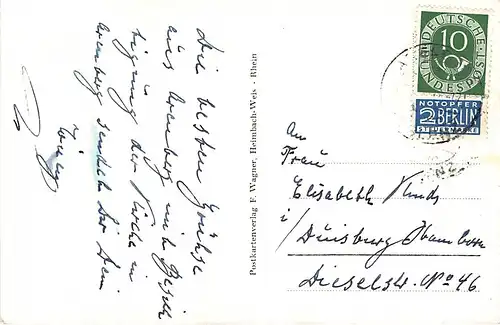 Die besten Grühse
aus Arenberg mit Besich
tigung der Kirche in
Arenberg sendet dir dein
Postkartenverlag F. Wagner, Heimbach-Weis - Rhein
DEUTSCHE BUNDESPOST
10
NOTOPFER
2 BERLIN
STEUERMARKE
An
Frau
Elisabeth
i/ Duisburg Hamborn
Dieselstr. No 46